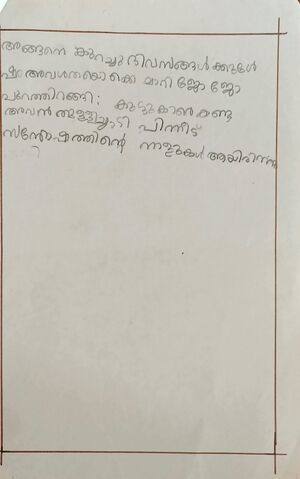 അങ്ങനെ കുറച്ചു ദിവസങ്ങൾക്കുള്ളിൽ
അവശതയൊക്കെ മാറി ജോ ജോ
പുറത്തിറങ്ങി; കൂട്ടുകാരൻ കണ്ടു
അവൻ തുള്ളിച്ചാടി പിന്നീട്
സന്തോഷത്തിന്റെ നാളുകൾ ആയിരുന്നു